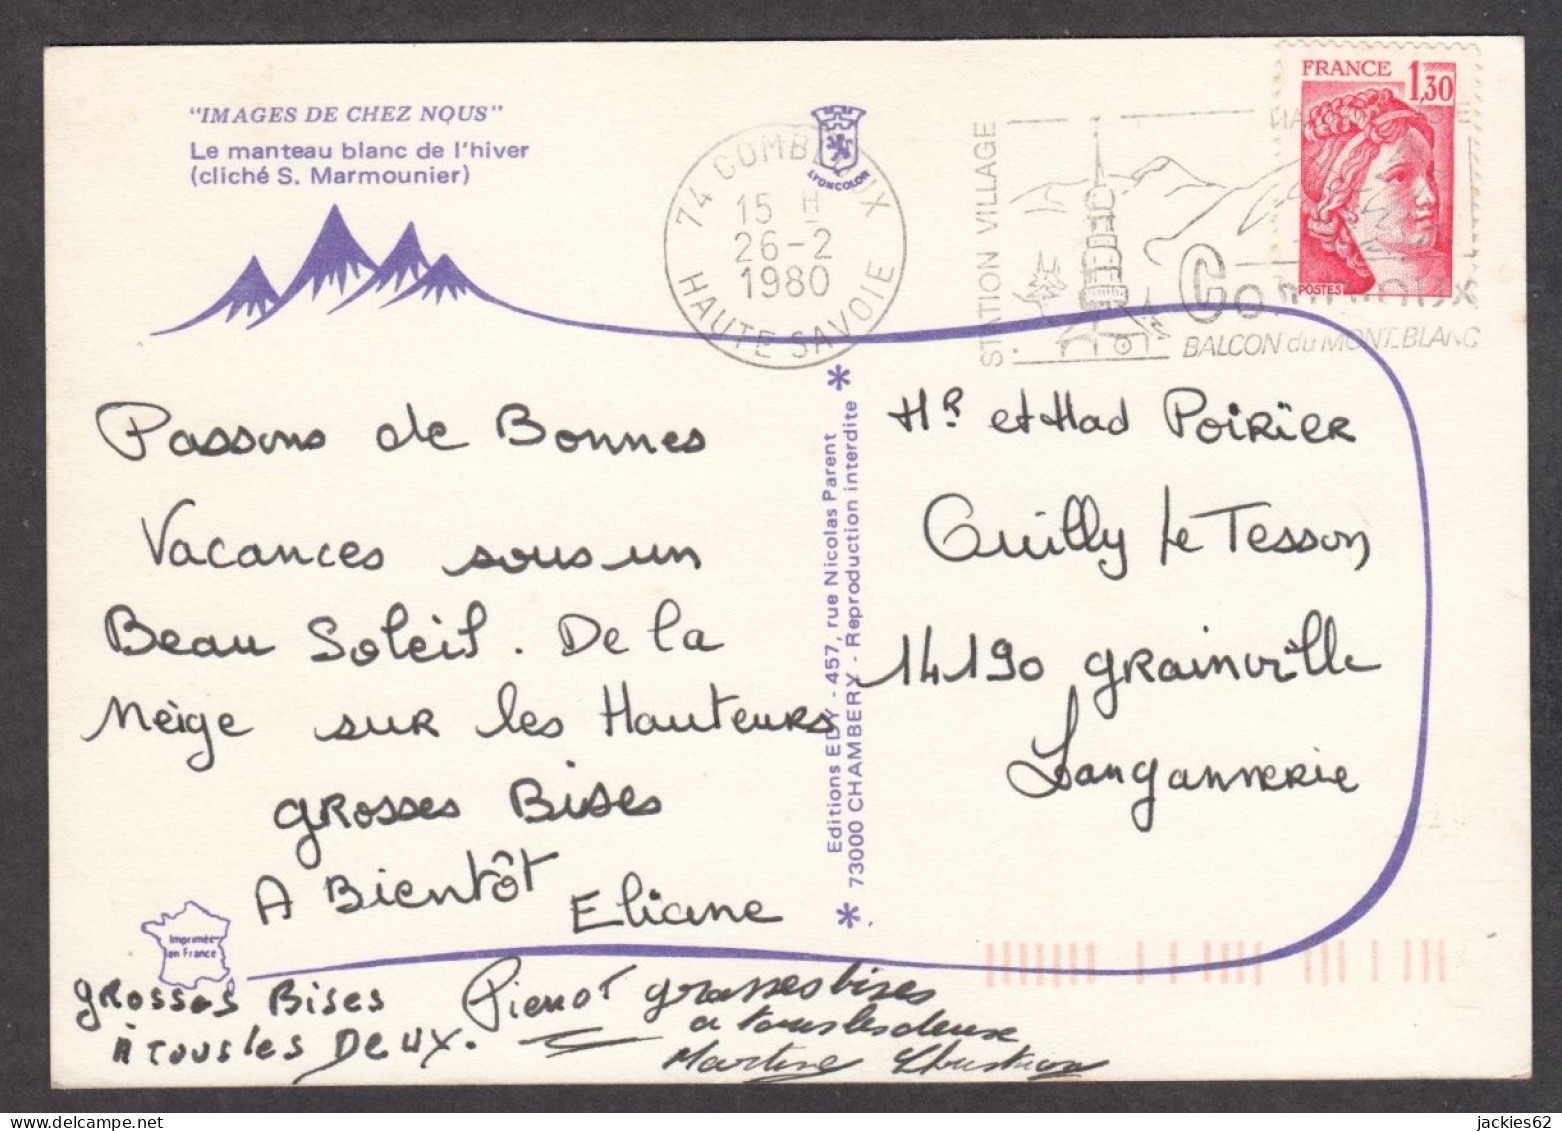 "IMAGES DE CHEZ NOUS"
Le manteau blanc de l'hiver
(cliché S. Marmounier)
LYONCOLOR
74 COMBLOUX
15 H
26-2
1980
HAUTE SAVOIE
STATION VILLAGE
BALCON du MONT-BLANC
FRANCE 1,30
POSTES
Passons de Bonnes
Vacances sous un
Beau Soleil. De la
Neige sur les Hauteurs
grosses Bises
A Bientôt
Eliane
grosses Bises
à tous les Deux.
Pierrot
grosses bises
a tous les deux
Martine Christian
Imprimée
en France
Editions EDY - 457, rue Nicolas Parent
73000 CHAMBERY - Reproduction interdite
Mr et Mad Poirier
Quilly le Tesson
14190 grainville
Langannerie
jackies62